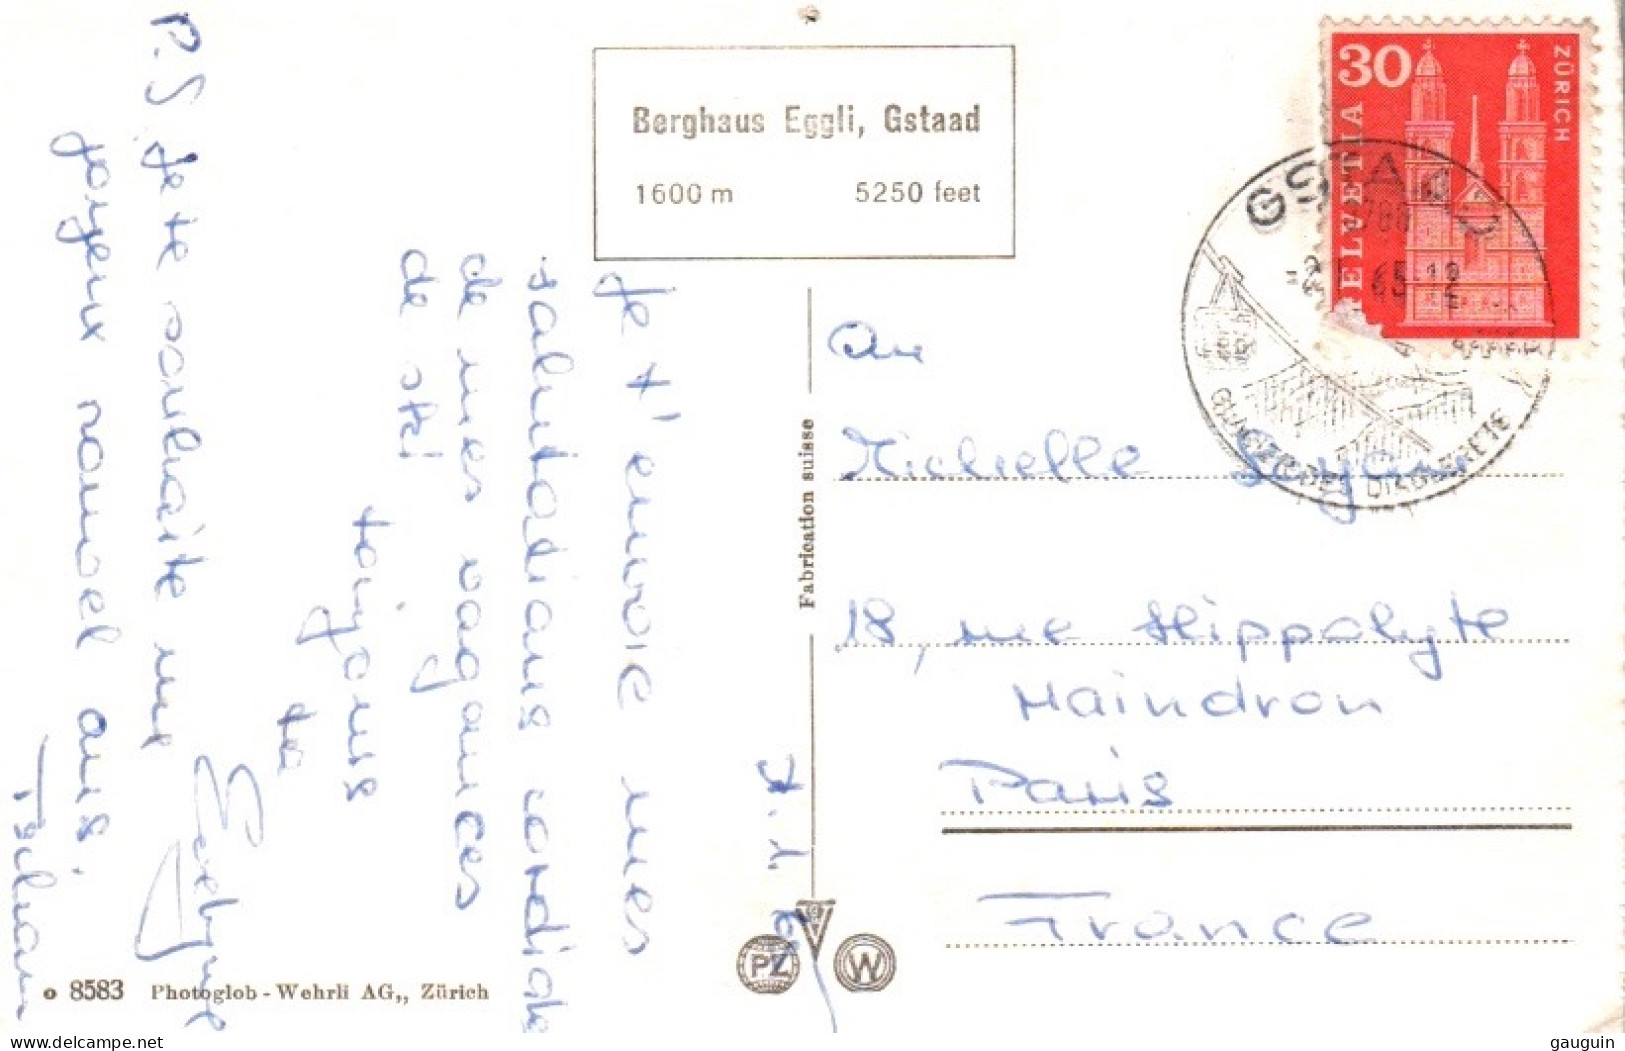 Berghaus Eggli, Gstaad
1600 m 5250 feet
30
ZÜRICH
HELVETIA
GSTAAD
65-12
GLACIER DES DIABLERETS
Je t'envoie mes
salutations cordiale
de mes vacances
de ski
toujours
ta
P.S. Je te souhaite une
joyeux nouvel ans.
An
Michelle
18, rue Hippolyte
Maindron
Paris
France
Fabrication suisse
PZ
W
8583 Photoglob-Wehrli AG,, Zürich
www.delcampe.net
gauguin